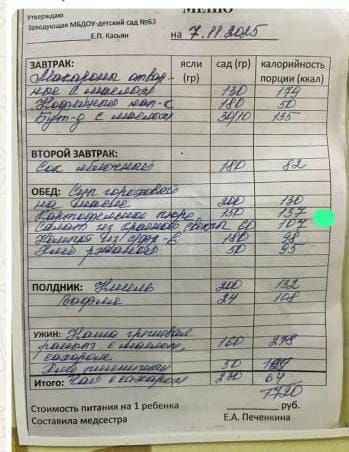 Утверждаю
Заведующая МБДОУ-детский сад №63
Е.П. Касьян
МЕНЮ
на 7.11.2025
ЗАВТРАК: ясли (гр) сад (гр) калорийность порции (ккал)
Макароны отвар-
ные с маслом 130 174
Кофейный нап-к 180 50
Бут-д с маслом 30/10 135
ВТОРОЙ ЗАВТРАК:
Сок яблочный 180 82
ОБЕД: Суп гороховый
200 130
Картофельное пюре 150 137
Салат из красной свеклы 60 107
Компот из с/фр-в 180
Хлеб ржаной 50 95
ПОЛДНИК: Кисель 200 132
Вафля 24 108
УЖИН: Каша гречневая
с маслом, 160 238
сахаром
Хлеб пшеничный 50
Итого: Чай с сахаром 64
1720
Стоимость питания на 1 ребенка руб.
Составила медсестра Е.А. Печенкина